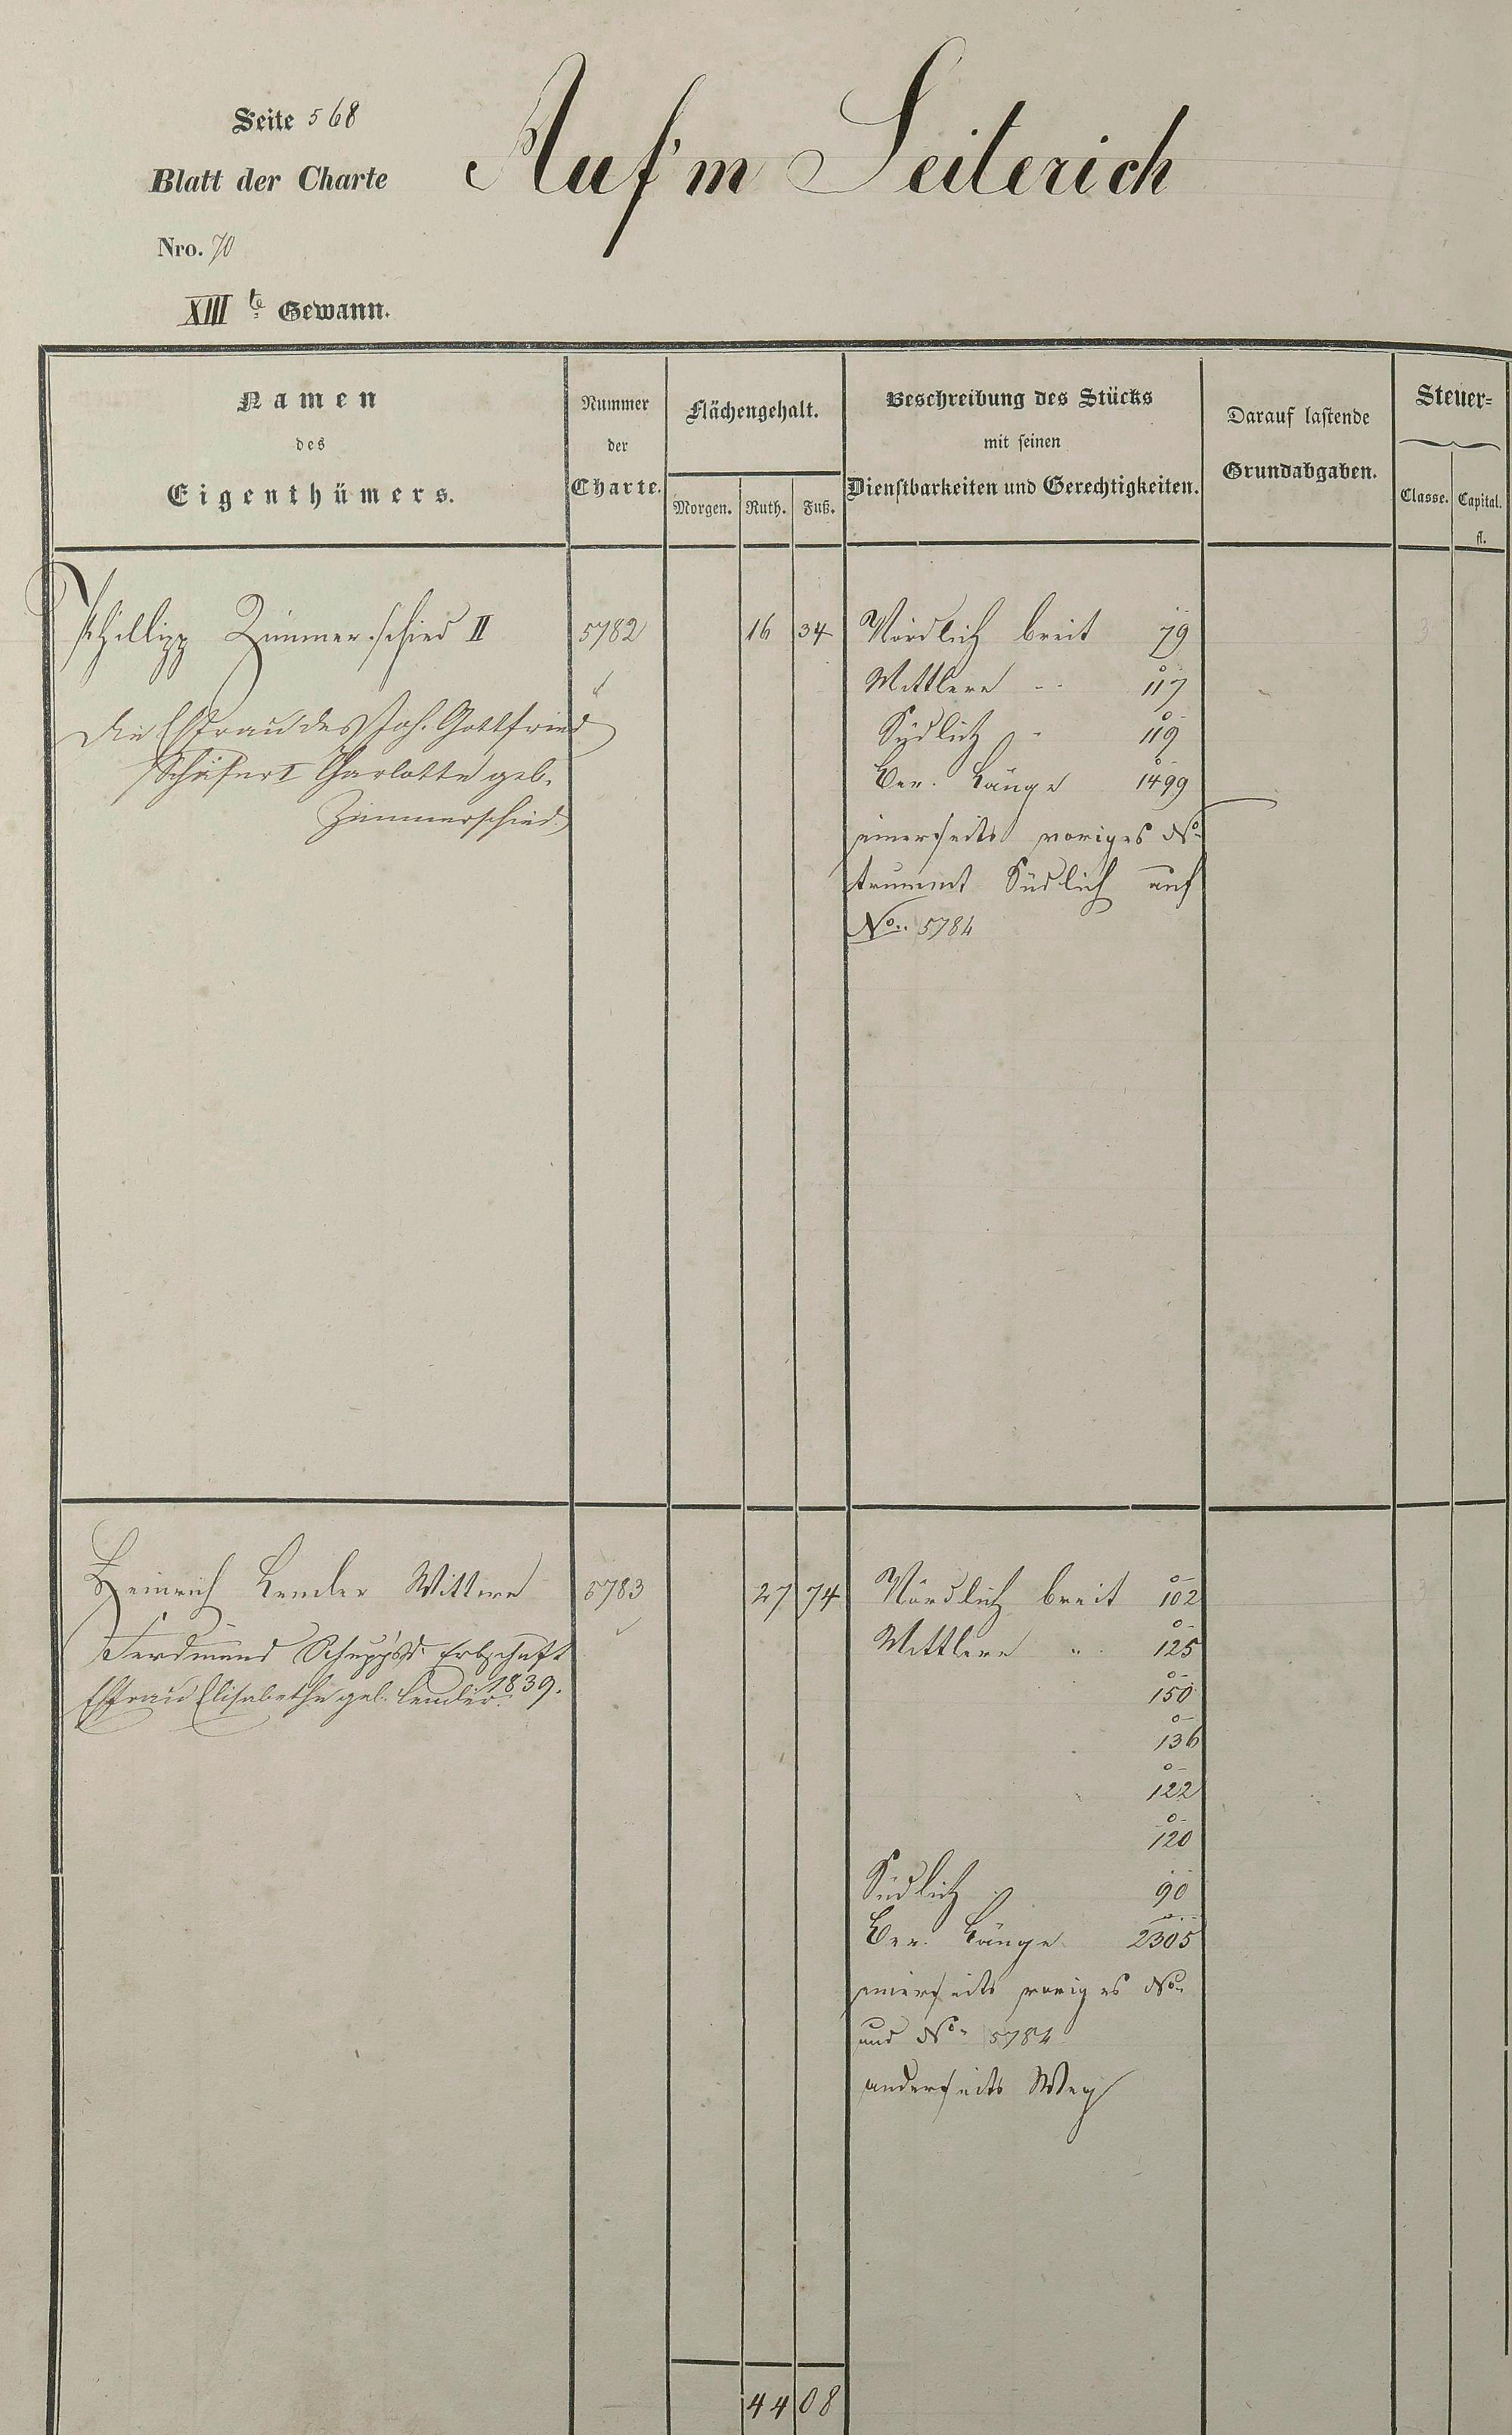 Seite 568
Auf'm Seiterich
Blatt der Charte
Nro. 70
XIII te Gewann.
Namen
des
Eigenthümers.
Nummer
der
Charte.
Flächengehalt.
Morgen. Ruth. Fuß.
Beschreibung des Stücks
mit seinen
Dienstbarkeiten und Gerechtigkeiten.
Darauf lastende
Grundabgaben.
Steuer=
Classe. Capital.
fl.
Phillipp Zimmerschied II 5782 16 34 Nördlich breit 79 3
Mittlere " 117
Die Ehfrau des Joh. Gottfried
Südlich " 119
Schäfer I Charlotte geb.
Ver. Länge 1499
Zimmerschied.
einerseits voriges No
trummt Südlich auf
No. 5784
Heinrich Lender Wittwe 5783 27 74 Nördlich breit 102 3
Ferdinand Erbschaft
Mittlere " 125
Ehfrau Elisabethe geb. Lender. 1839.
150
136
122
120
Südlich " 90
Ver. Länge 2305
einerseits voriges No
und No 5784
anderseits Weg
44 08